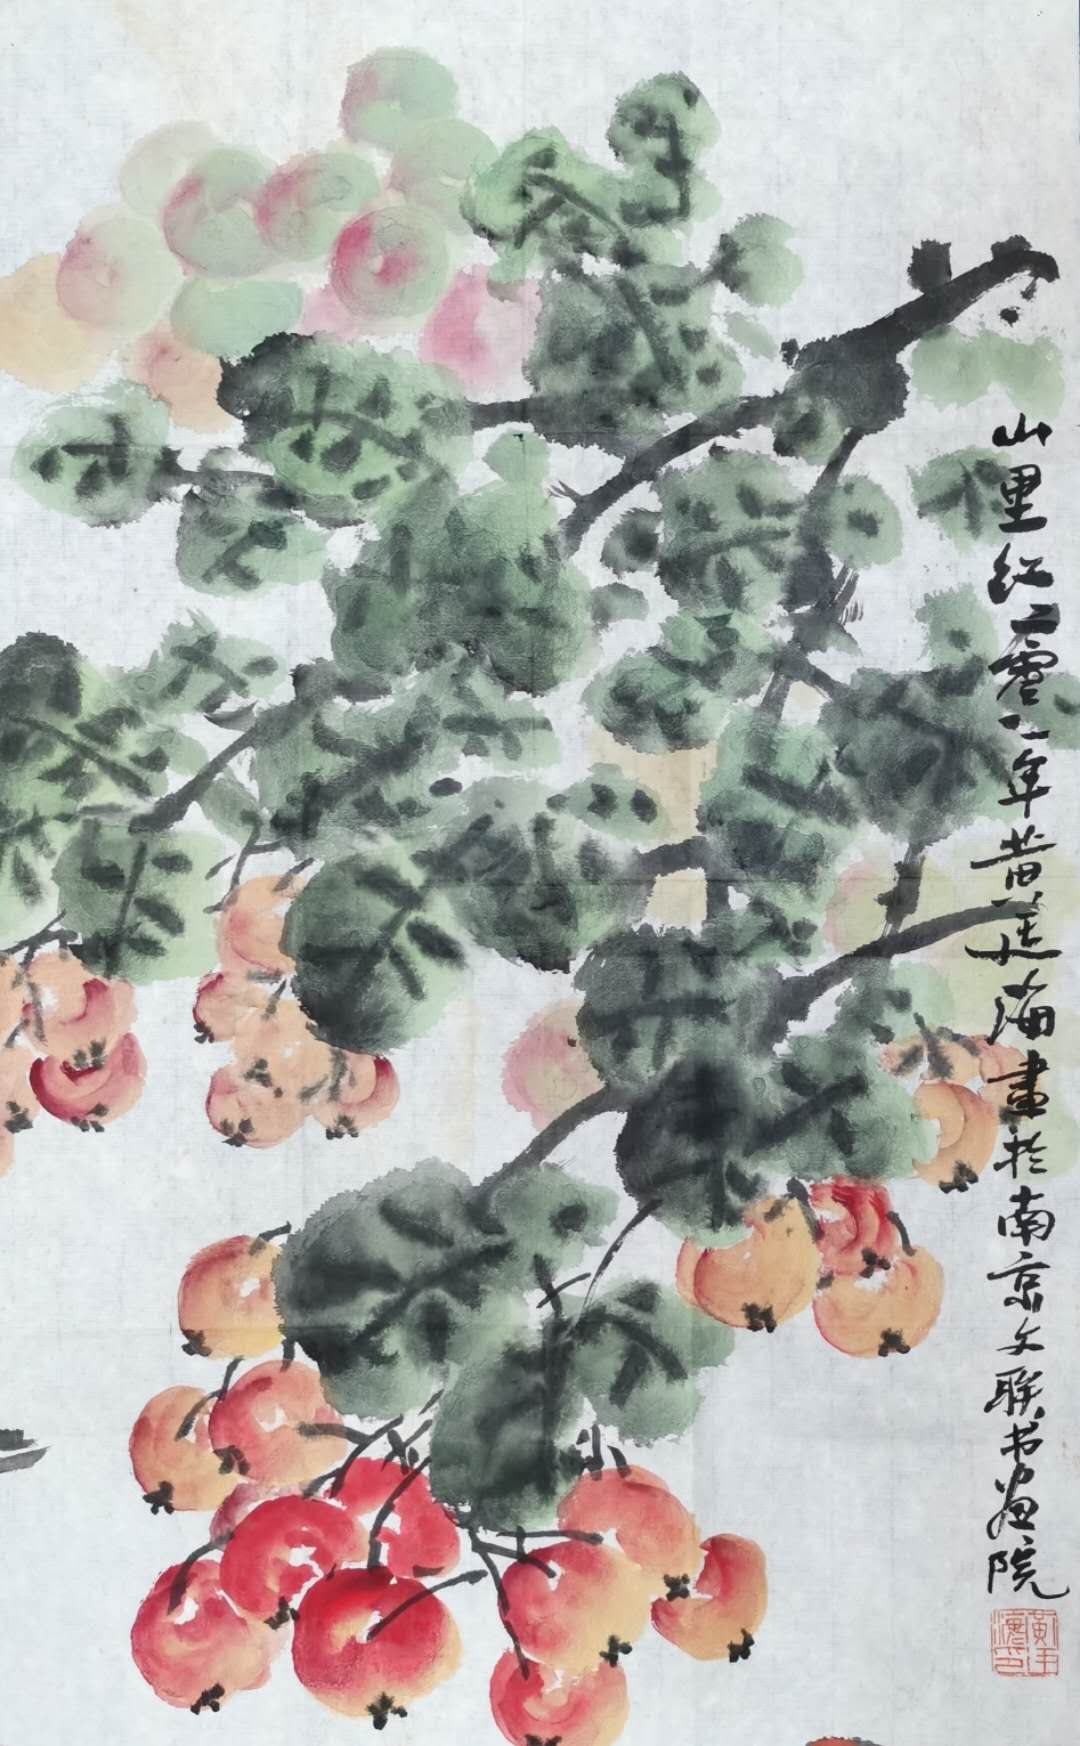 山里红二零一一年黄廷海畫於南京文联书画院
黄廷海印